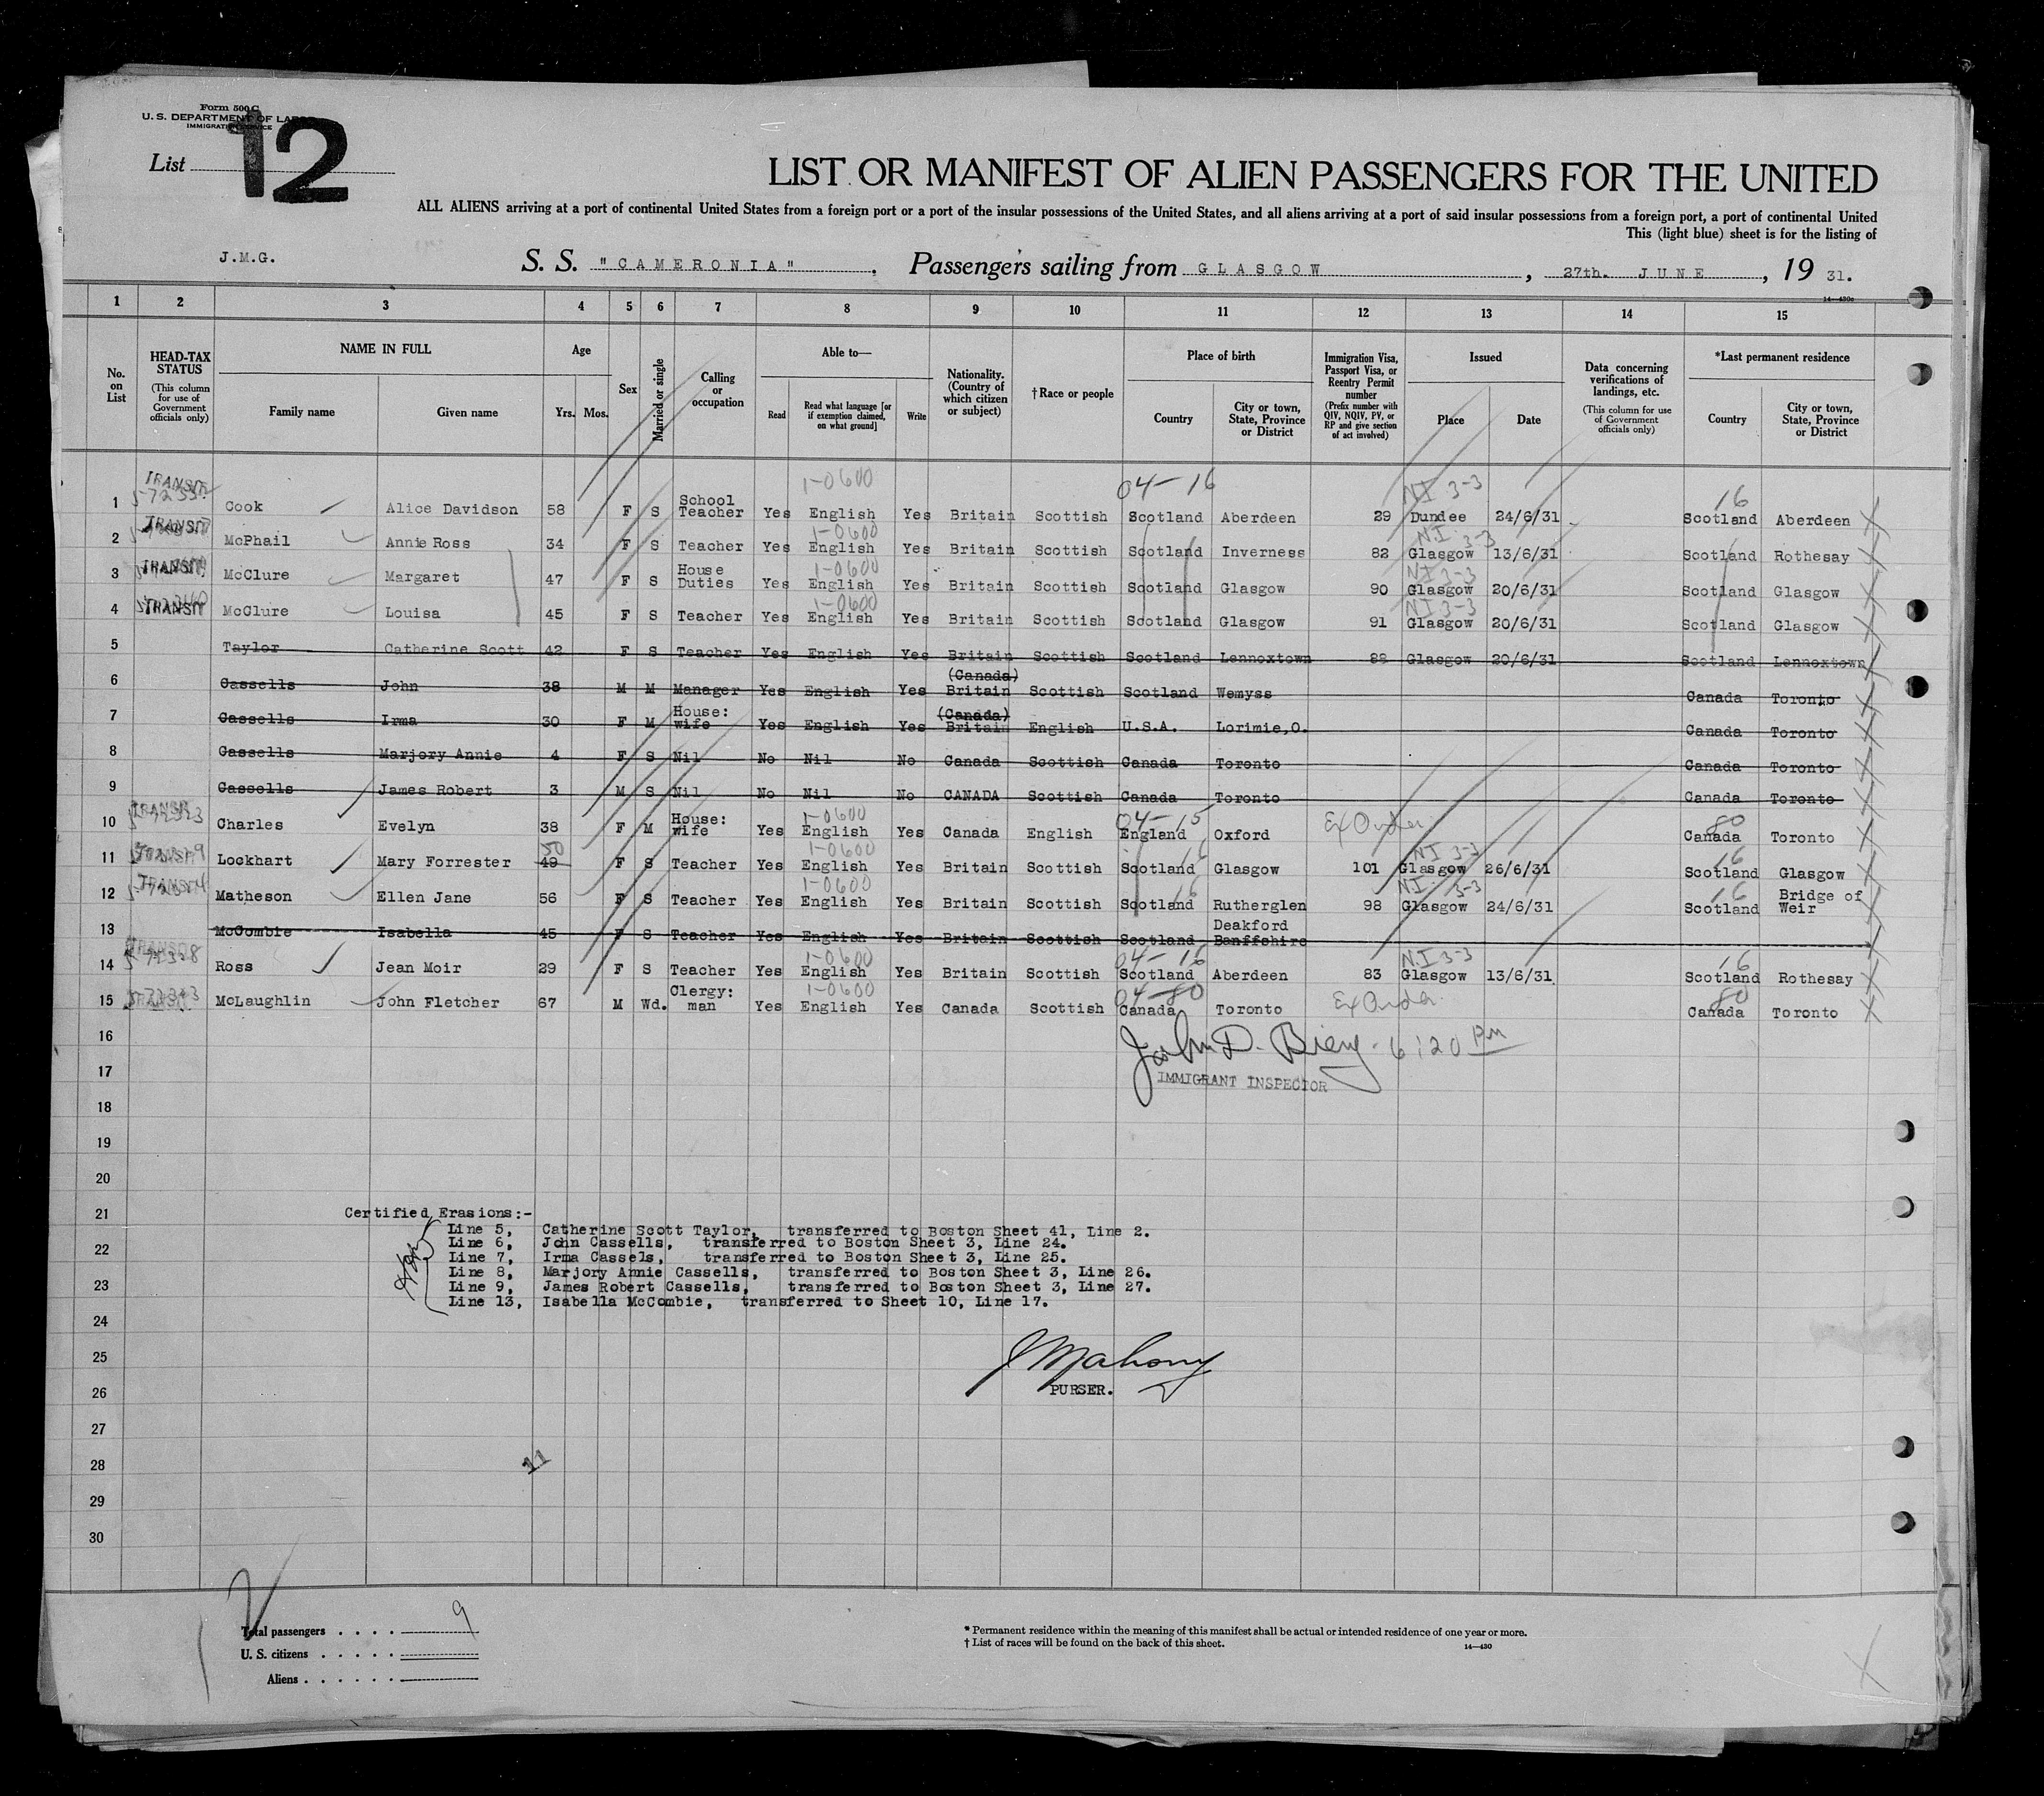 Form 500 C
U. S. DEPARTMENT OF
IMMIGRATION SERVICE
List 12
LIST OR MANIFEST OF ALIEN PASSENGERS FOR THE UNITED
ALL ALIENS arriving at a port of continental United States from a foreign port or a port of the insular possessions of the United States, and all aliens arriving at a port of said insular possessions from a foreign port, a port of continental United
This (light blue) sheet is for the listing of
J.M.G. S. S. "CAMERONIA", Passengers sailing from GLASGOW, 27th. JUNE, 19 31.
14—430c
1 2 3 4 5 6 7 8 9 10 11 12 13 14 15
No. on List
HEAD-TAX STATUS (This column for use of Government officials only)
NAME IN FULL
Family name Given name
Age
Yrs. Mos.
Sex
Married or single
Calling or occupation
Able to—
Read Read what language [or if exemption claimed, on what ground] Write
Nationality. (Country of which citizen or subject)
†Race or people
Place of birth
Country City or town, State, Province or District
Immigration Visa, Passport Visa, or Reentry Permit number (Prefix number with QIV, NQIV, PV, or RP and give section of act involved)
Issued
Place Date
Data concerning verifications of landings, etc. (This column for use of Government officials only)
*Last permanent residence
Country City or town, State, Province or District
1-0600 04-16 NI 3-3 16
1 TRANSIT Cook Alice Davidson 58 F S School Teacher Yes English Yes Britain Scottish Scotland Aberdeen 29 Dundee 24/6/31 Scotland Aberdeen X
1-0600 N.I 3-3
2 TRANSIT McPhail Annie Ross 34 F S Teacher Yes English Yes Britain Scottish Scotland Inverness 82 Glasgow 13/6/31 Scotland Rothesay X
1-0600 NI 3-3
3 TRANSIT McClure Margaret 47 F S House Duties Yes English Yes Britain Scottish Scotland Glasgow 90 Glasgow 20/6/31 Scotland Glasgow X
1-0600 NI 3-3
4 TRANSIT McClure Louisa 45 F S Teacher Yes English Yes Britain Scottish Scotland Glasgow 91 Glasgow 20/6/31 Scotland Glasgow X
5 Taylor Catherine Scott 42 F S Teacher Yes English Yes Britain Scottish Scotland Lennoxtown 88 Glasgow 20/6/31 Scotland Lennoxtown
6 Cassells John 38 M M Manager Yes English Yes (Canada) Britain Scottish Scotland Wemyss Canada Toronto X
7 Cassells Irma 30 F M House: wife Yes English Yes (Canada) Britain English U.S.A. Lorimie,O. Canada Toronto X
8 Cassells Marjory Annie 4 F S Nil No Nil No Canada Scottish Canada Toronto Canada Toronto X
9 Cassells James Robert 3 M S Nil No Nil No CANADA Scottish Canada Toronto Canada Toronto X
1-0600 04-15 80
10 TRANSIT Charles Evelyn 38 F M House: wife Yes English Yes Canada English England Oxford Canada Toronto X
50 1-0600 16 NI 3-3 16
11 TRANSIT Lockhart Mary Forrester 49 F S Teacher Yes English Yes Britain Scottish Scotland Glasgow 101 Glasgow 26/6/31 Scotland Glasgow X
1-0600 16 N.I 3-3 16
12 TRANSIT Matheson Ellen Jane 56 F S Teacher Yes English Yes Britain Scottish Scotland Rutherglen 98 Glasgow 24/6/31 Scotland Bridge of Weir X
13 McCombie Isabella 45 F S Teacher Yes English Yes Britain Scottish Scotland Deakford Banffshire
1-0600 04-16 N.I 3-3 16
14 TRANSIT Ross Jean Moir 29 F S Teacher Yes English Yes Britain Scottish Scotland Aberdeen 83 Glasgow 13/6/31 Scotland Rothesay X
1-0600 04-80 80
15 TRANSIT McLaughlin John Fletcher 67 M Wd. Clergy: man Yes English Yes Canada Scottish Canada Toronto Canada Toronto X
16 John D. 6:20 PM
17 IMMIGRANT INSPECTOR
18
19
20
21 Certified Erasions:-
Line 5, Catherine Scott Taylor, transferred to Boston Sheet 41, Line 2.
22 Line 6, John Cassells, transferred to Boston Sheet 3, Line 24.
Line 7, Irma Cassels, transferred to Boston Sheet 3, Line 25.
Line 8, Marjory Annie Cassells, transferred to Boston Sheet 3, Line 26.
23 Line 9, James Robert Cassells, transferred to Boston Sheet 3, Line 27.
Line 13, Isabella McCombie, transferred to Sheet 10, Line 17.
24
25 J Mahony
26 PURSER.
27
28 11
29
30
Total passengers . . . . 9
U. S. citizens . . . . .
Aliens . . . . . .
* Permanent residence within the meaning of this manifest shall be actual or intended residence of one year or more.
† List of races will be found on the back of this sheet.
14—430
X